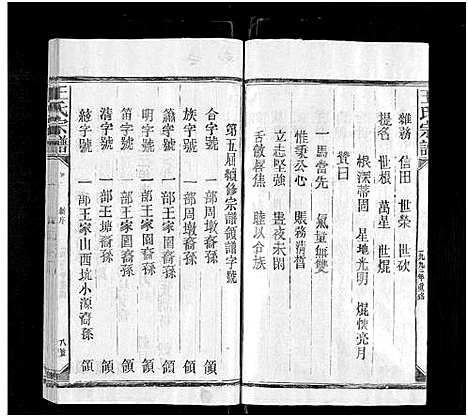 雜務 信田 世榮 世砍
提名 世根 萬星 世焜
根深蒂固 星地光明 焜恍亮月
贊曰
一馬當先 氣量無雙
惟秉公心 賬務精皙
立志堅強 晝夜未閑
舌敝唇焦 睦以合族
第五屆續修宗譜領譜字號
合字號 一部周墩裔孫 領
族字號 一部周墩裔孫 領
簫字號 一部王家園裔孫 領
明字號 一部王家園裔孫 領
笛字號 一部王家園裔孫 領
清字號 一部王家塘裔孫 領
總字號 一部王家山西坑小源裔孫 領
王氏宗譜
王氏宗譜